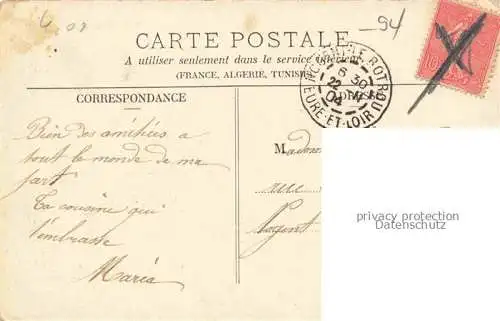 94
CARTE POSTALE
A utiliser seulement dans le service intérieur
(FRANCE, ALGERIE, TUNISIE)
NOGENT-LE-ROTROU
6 30
22
04
EURE-ET-LOIR
CORRESPONDANCE
ADRESSE
Bien des amitiés a
tout le monde de ma
part
Ta cousine qui
t'embrasse
Maria
M
rue
Nogent
privacy protection
Datenschutz
10